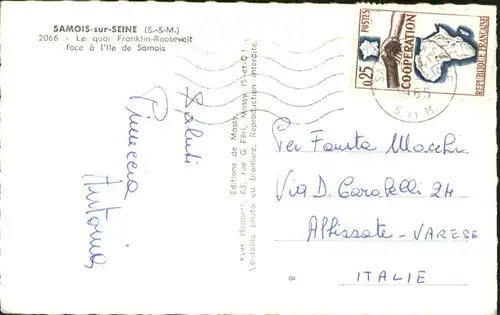 SAMOIS-sur-SEINE (S.-&-M.)
2066 - Le quai Franklin-Roosevelt
face à l'Ile de Samois
Saluti
Pinuccia
Antonia
Editions de Massy.
Yvres 63, rue G. Péri, Massy (S.-et-O.)
Véritable photo au bromure. Reproduction interdite.
POSTES
0,25
COOPERATION
REPUBLIQUE FRANÇAISE
S. M.
Per Fausta Macchi
Via D. 24
VARESE
ITALIE